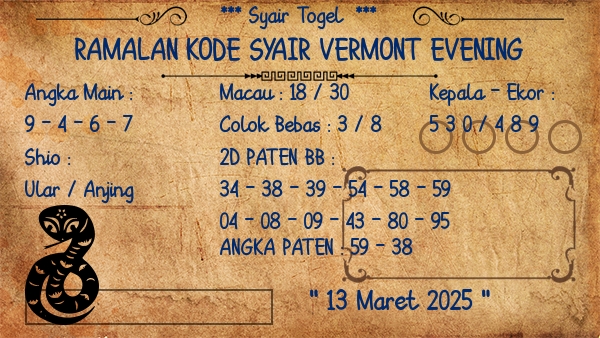 *** Syair Togel ***
RAMALAN KODE SYAIR VERMONT EVENING
Angka Main :
9 - 4 - 6 - 7
Shio :
Ular / Anjing
Macau : 18 / 30
Colok Bebas : 3 / 8
2D PATEN BB :
34 - 38 - 39 - 54 - 58 - 59
04 - 08 - 09 - 43 - 80 - 95
ANGKA PATEN : 59 - 38
Kepala - Ekor :
5 3 0 / 4 8 9
" 13 Maret 2025 "